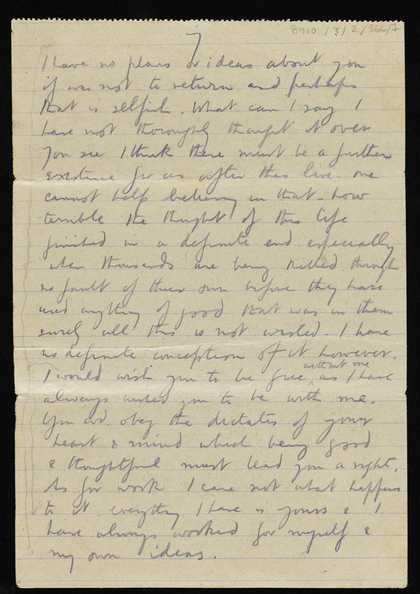 7
I have no plans or ideas about you
if I was not to return and perhaps
that is selfish. What can I say I
have not thoroughly thought it over
You see I think there must be a further
existence for us after this live - one
cannot help believing in that - how
terrible the thought of this life
finished in a definite end especially
when thousands are being killed through
no fault of their own before they have
used anything of good that was in them
surely all this is not wasted. I have
no definite conception of it however.
I would wish you to be free, as I have
without me
always wished you to be with me.
You wd. obey the dictates of your
heart & mind which being good
& thoughtful must lead you a right.
As for work I care not what happens
to it everything I have is yours & I
have always worked for myself &
my own ideas.